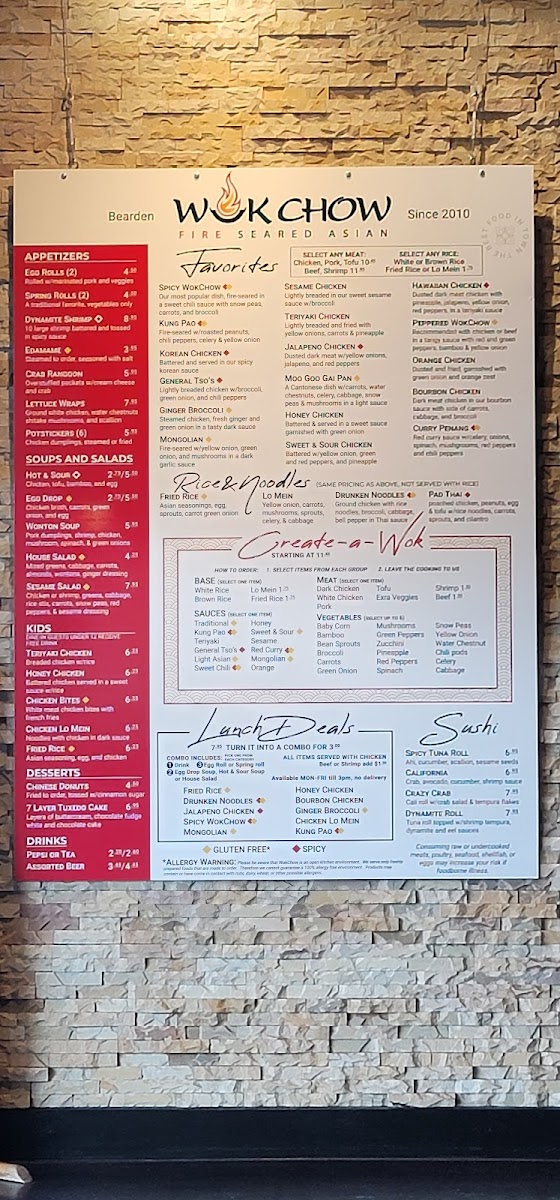 Bearden
WOK CHOW
Since 2010
FIRE SEARED ASIAN
THE BEST FOOD IN TOWN
APPETIZERS
EGG ROLLS (2)
Rolled w/marinated pork and veggies
SPRING ROLLS (2)
A traditional favorite, vegetables only
DYNAMITE SHRIMP
10 large shrimp battered and tossed
in spicy sauce
EDAMAME
Steamed to order, seasoned with salt
CRAB RANGOON
Overstuffed pockets w/cream cheese
and crab
LETTUCE WRAPS
Ground white chicken, water chestnuts
shitake mushrooms, and scallion
POTSTICKERS (6)
Chicken dumplings, steamed or fried
SOUPS AND SALADS
HOT & SOUR
Chicken, tofu, bamboo, and egg
EGG DROP
Chicken broth, carrots, green
onion, and egg
WONTON SOUP
Pork dumplings, shrimp, chicken,
mushroom, spinach, & green onions
HOUSE SALAD
Mixed greens, cabbage, carrots,
almonds, wontons, ginger dressing
SESAME SALAD
Chicken or shrimp, greens, cabbage,
rice stix, carrots, snow peas, red
peppers, & sesame dressing
KIDS
DINE-IN GUESTS UNDER 12 RECEIVE
FREE DRINK
TERIYAKI CHICKEN
Breaded chicken w/rice
HONEY CHICKEN
Battered chicken served in a sweet
sauce w/rice
CHICKEN BITES
White meat chicken bites with
french fries
CHICKEN LO MEIN
Noodles with chicken in dark sauce
FRIED RICE
Asian seasoning, egg, and chicken
DESSERTS
CHINESE DONUTS
Fried to order, tossed w/cinnamon sugar
7 LAYER TUXEDO CAKE
Layers of buttercream, chocolate fudge
white and chocolate cake
DRINKS
PEPSI OR TEA
ASSORTED BEER
Favorites
SELECT ANY MEAT:
Chicken, Pork, Tofu 10
Beef, Shrimp 11
SELECT ANY RICE:
White or Brown Rice
Fried Rice or Lo Mein 1
SPICY WOKCHOW
Our most popular dish, fire-seared in
a sweet chili sauce with snow peas,
carrots, and broccoli
KUNG PAO
Fire-seared w/roasted peanuts,
chili peppers, celery & yellow onion
KOREAN CHICKEN
Battered and served in our spicy
korean sauce
GENERAL TSO'S
Lightly breaded chicken w/broccoli,
green onion, and chili peppers
GINGER BROCCOLI
Steamed chicken, fresh ginger and
green onion in a tasty dark sauce
MONGOLIAN
Fire-seared w/yellow onion, green
onion, and mushrooms in a dark
garlic sauce
SESAME CHICKEN
Lightly breaded in our sweet sesame
sauce w/broccoli
TERIYAKI CHICKEN
Lightly breaded and fried with
yellow onions, carrots & pineapple
JALAPENO CHICKEN
Dusted dark meat w/yellow onions,
jalapeno, and red peppers
MOO GOO GAI PAN
A Cantonese dish w/carrots, water
chestnuts, celery, cabbage, snow
peas & mushrooms in a light sauce
HONEY CHICKEN
Battered & served in a sweet sauce
garnished with green onion
SWEET & SOUR CHICKEN
Battered w/yellow onion, green
and red peppers, and pineapple
HAWAIIAN CHICKEN
Dusted dark meat chicken with
pineapple, jalapeno, yellow onion,
red peppers, in a teriyaki sauce
PEPPERED WOKCHOW
Recommended with chicken or beef
in a tangy sauce with red and green
peppers, bamboo & yellow onion
ORANGE CHICKEN
Dusted and fried, garnished with
green onion and orange zest
BOURBON CHICKEN
Dark meat chicken in our bourbon
sauce with side of carrots,
broccoli, and cabbage
CURRY PENANG
Red curry sauce w/celery, onions,
spinach, mushgrooms, red peppers
and chili peppers
Rice & Noodles (SAME PRICING AS ABOVE, NOT SERVED WITH RICE)
FRIED RICE
Asian seasonings, egg,
sprouts, carrot green onion
LO MEIN
Yellow onion, carrots,
mushrooms, sprouts,
celery, & cabbage
DRUNKEN NOODLES
Ground chicken with rice
noodles, broccoli, cabbage,
bell pepper in Thai sauce
PAD THAI
poached chicken, peanuts, egg
& tofu w/rice noodles, carrots,
sprouts, and cilantro
Create-a-Wok
STARTING AT 11
HOW TO ORDER: 1. SELECT ITEMS FROM EACH GROUP 2. LEAVE THE COOKING TO US
BASE (SELECT ONE ITEM)
White Rice Lo Mein 1
Brown Rice Fried Rice 1
SAUCES (SELECT ONE ITEM)
Traditional Honey
Kung Pao Sweet & Sour
Teriyaki Sesame
General Tso's Red Curry
Light Asian Mongolian
Sweet Chili Orange
MEAT (SELECT ONE ITEM)
Dark Chicken Tofu Shrimp 1
White Chicken Exra Veggies Beef 1
Pork
VEGETABLES (SELECT UP TO 6)
Baby Corn Mushrooms Snow Peas
Bamboo Green Peppers Yellow Onion
Bean Sprouts Zucchini Water Chestnut
Broccoli Pineapple Chili pods
Carrots Red Peppers Celery
Green Onion Spinach Cabbage
Lunch Deals
TURN IT INTO A COMBO FOR 3
COMBO INCLUDES: PICK ONE FROM EACH CATEGORY
1 Drink 3 Egg Roll or Spring roll
2 Egg Drop Soup, Hot & Sour Soup
or House Salad
ALL ITEMS SERVED WITH CHICKEN
Beef or Shrimp add $1
Available MON-FRI till 3pm, no delivery
FRIED RICE
DRUNKEN NOODLES
JALAPENO CHICKEN
SPICY WOKCHOW
MONGOLIAN
HONEY CHICKEN
BOURBON CHICKEN
GINGER BROCCOLI
CHICKEN LO MEIN
KUNG PAO
Sushi
SPICY TUNA ROLL
Ahi, cucumber, scallion, sesame seeds
CALIFORNIA
Crab, avocado, cucumber, shrimp sauce
CRAZY CRAB
Cali roll w/crab salad & tempura flakes
DYNAMITE ROLL
Tuna roll topped w/shrimp tempura,
dynamite and eel sauces
Consuming raw or undercooked
meats, poultry, seafood, shellfish, or
eggs may increase your risk if
foodborne illness.
GLUTEN FREE* SPICY
*ALLERGY WARNING: Please be aware that WokChow is an open kitchen environment. We serve only freshly
prepared foods that are made to order. Therefore we cannot guarantee a 100% allergy free environment. Products may
contain or have come in contact with nuts, dairy, wheat, or other possible allergens.